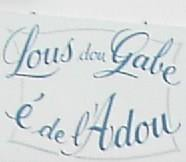 Lous dou Gabe
é de l'Adou